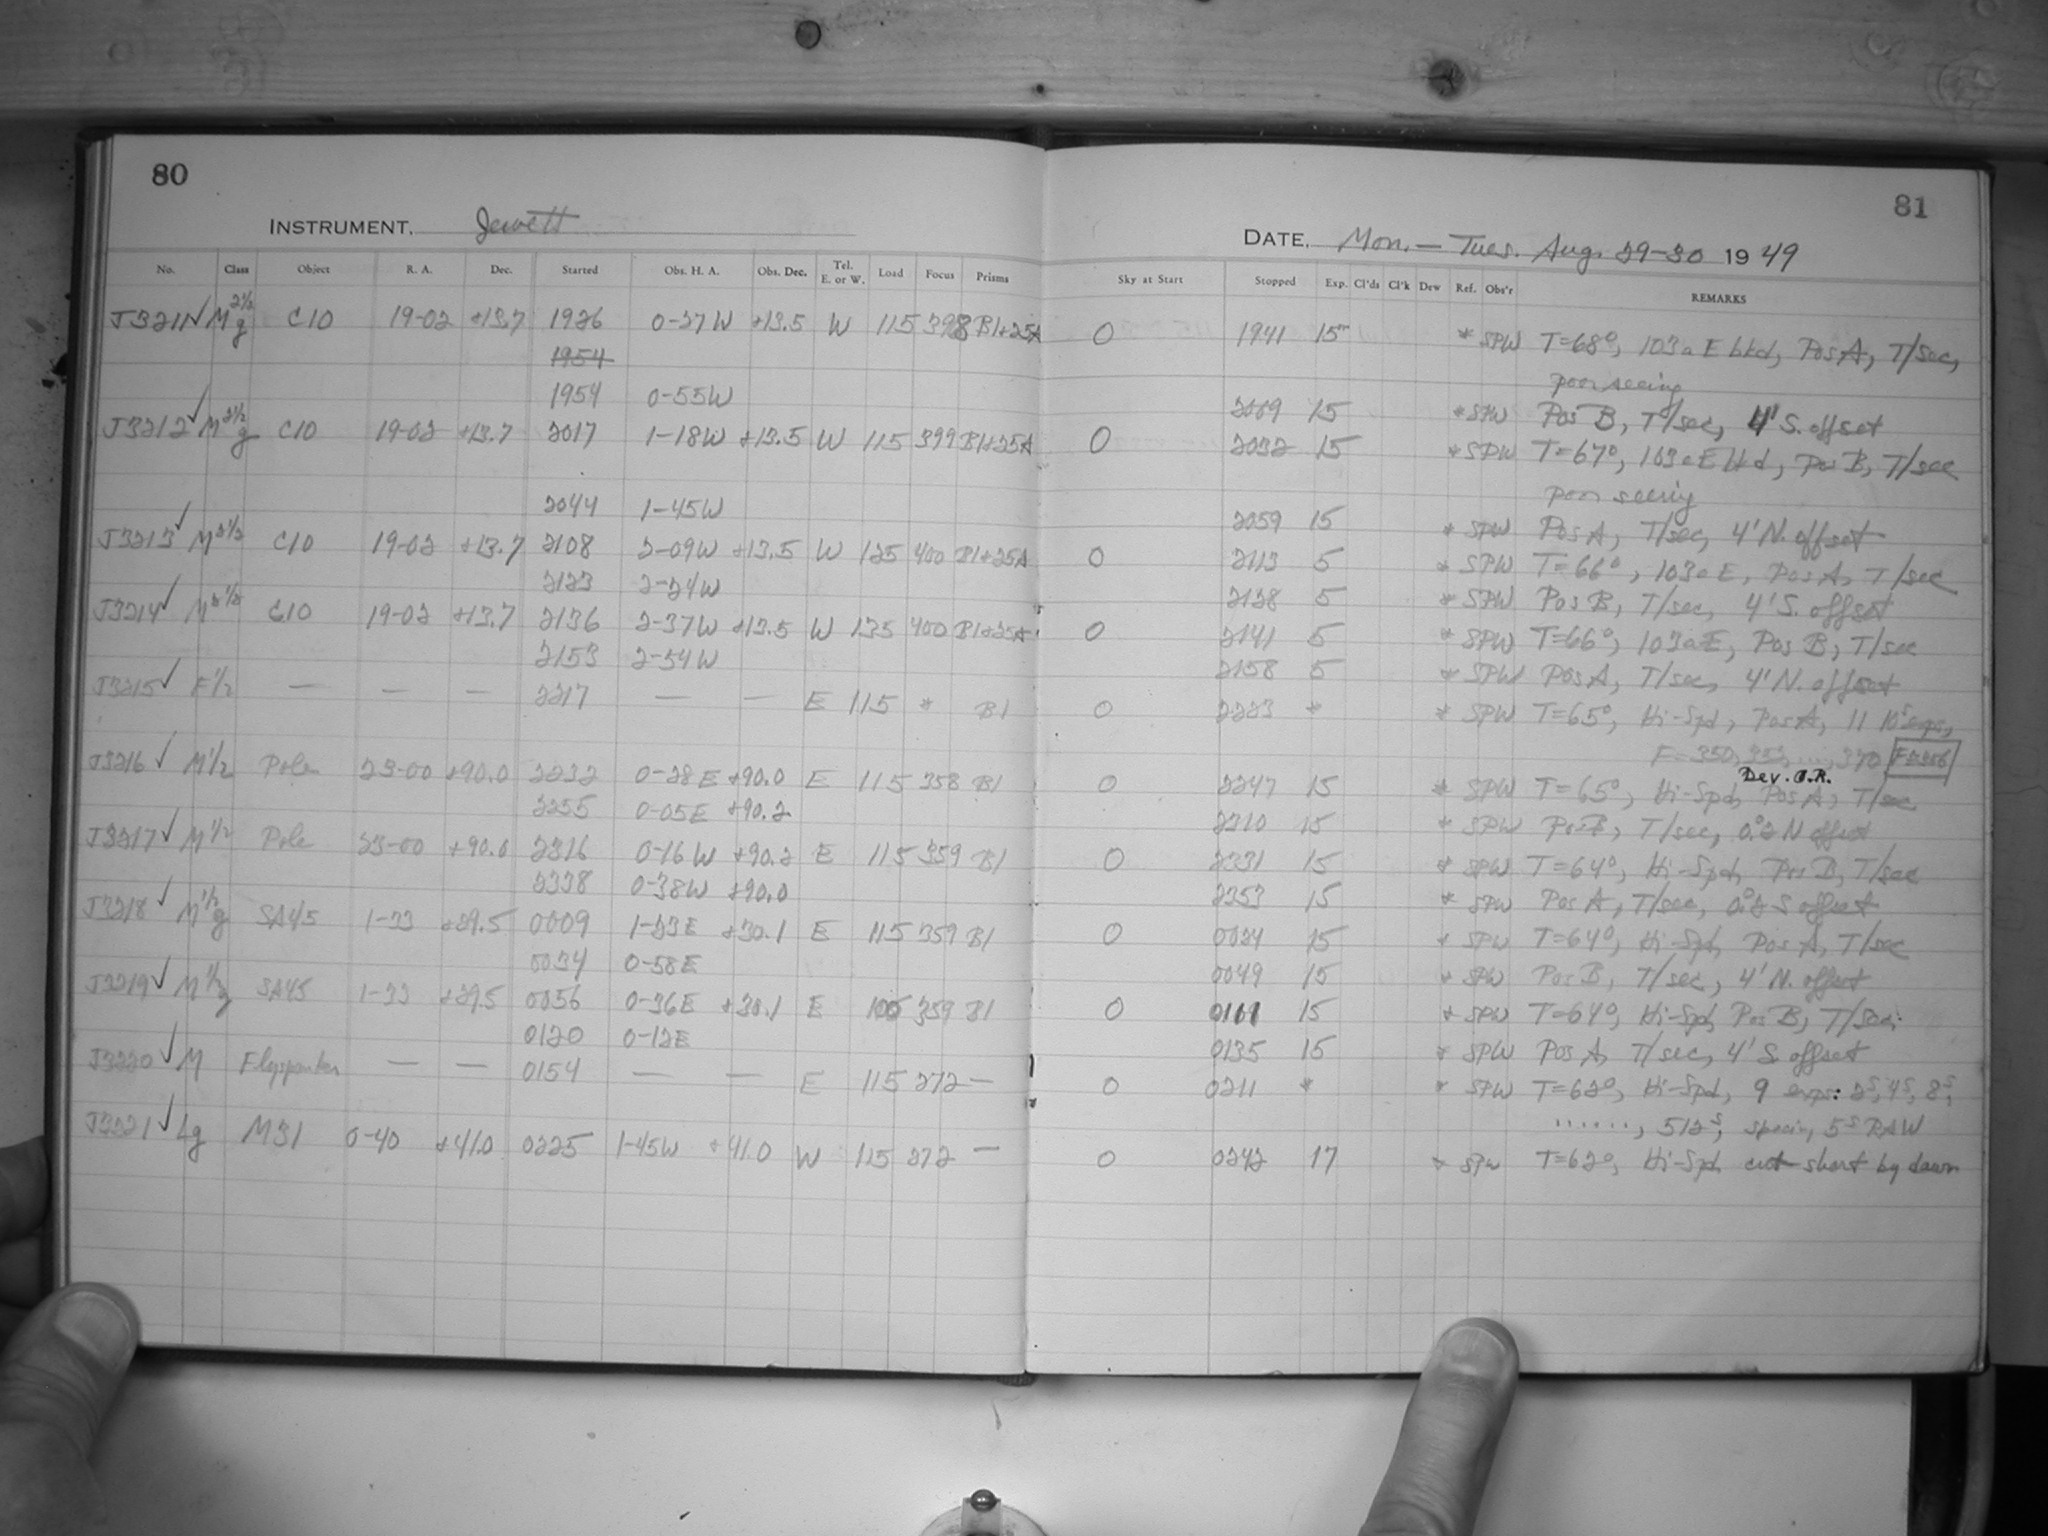 80
81
INSTRUMENT. Jewett
DATE. Mon. — Tues. Aug. 29-30 1949
No. Class Object R. A. Dec. Started Obs. H. A. Obs. Dec. Tel. E. or W. Load Focus Prisms Sky at Start Stopped Exp. Cl'ds Cl'k Dew Ref. Obs'r REMARKS
J3211 ✓ M 2½ g C10 19-02 +13.7 1926 0-27W +13.5 W 115 398 B1+25A 0 1941 15m * SPW T=68°, 103aE bkd, Pos A, T/sec,
1954 poor seeing
1954 0-55W 2009 15 * SPW Pos B, T/sec, 4' S. offset
J3212 ✓ M 2½ g C10 19-02 +13.7 2017 1-18W +13.5 W 115 399 B1+25A 0 2032 15 * SPW T=67°, 103aE bkd, Pos B, T/sec
poor seeing
2044 1-45W 2059 15 * SPW Pos A, T/sec, 4' N. offset
J3213 ✓ M 2½ C10 19-02 +13.7 2108 2-09W +13.5 W 125 400 B1+25A 0 2113 5 * SPW T=66°, 103aE, Pos A, T/sec
2123 2-24W 2128 5 * SPW Pos B, T/sec, 4' S. offset
J3214 ✓ M 2½ C10 19-02 +13.7 2136 2-37W +13.5 W 135 400 B1+25A 0 2141 5 * SPW T=66°, 103aE, Pos B, T/sec
2153 2-54W 2158 5 * SPW Pos A, T/sec, 4' N. offset
J3215 ✓ F½ — — — 2217 — — E 115 * B1 0 2223 * * SPW T=65°, Hi-Spd, Pos A, 11 10s exps,
F=350, 352, ...., 370 F=356
Dev. O.R.
J3216 ✓ M½ Pole 23-00 +90.0 2232 0-28E +90.0 E 115 358 B1 0 2247 15 * SPW T=65°, Hi-Spd, Pos A, T/sec
2255 0-05E +90.2 2310 15 * SPW Pos B, T/sec, 0.°2 N offset
J3217 ✓ M½ Pole 23-00 +90.0 2316 0-16W +90.2 E 115 359 B1 0 2331 15 * SPW T=64°, Hi-Spd, Pos B, T/sec
2338 0-38W +90.0 2353 15 * SPW Pos A, T/sec, 0.°2 S offset
J3218 ✓ M½ g SA45 1-33 +29.5 0009 1-23E +30.1 E 115 359 B1 0 0024 15 * SPW T=64°, Hi-Spd, Pos A, T/sec
0034 0-58E 0049 15 * SPW Pos B, T/sec, 4' N. offset
J3219 ✓ M½ g SA45 1-33 +29.5 0056 0-36E +30.1 E 105 359 B1 0 0111 15 * SPW T=64°, Hi-Spd, Pos B, T/sec
0120 0-12E 0135 15 * SPW Pos A, T/sec, 4' S. offset
J3220 ✓ M Flyspanker — — 0154 — — E 115 272 — 0 0211 * * SPW T=62°, Hi-Spd, 9 exps: 2s, 4s, 8s,
......, 512s, 5s RAW
J3221 ✓ Lg M31 0-40 +41.0 0225 1-45W +41.0 W 115 272 — 0 0242 17 * SPW T=62°, Hi-Spd, cut short by dawn